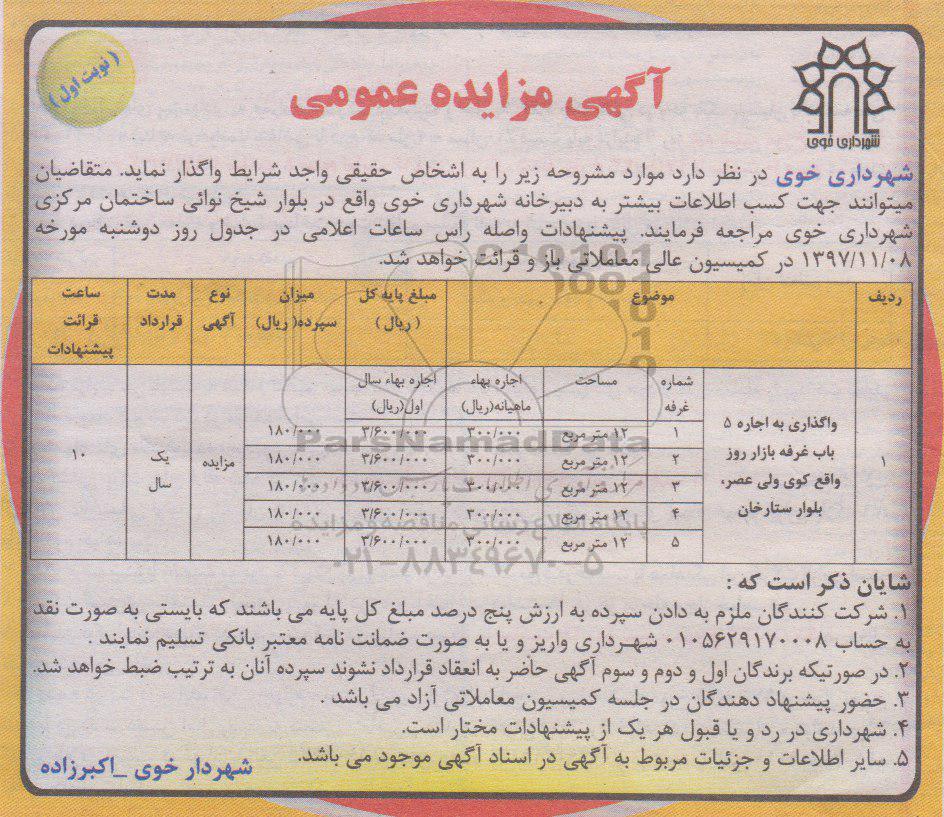 شهرداری خوی
آگهی مزایده عمومی
( نوبت اول )
شهرداری خوی در نظر دارد موارد مشروحه زیر را به اشخاص حقیقی واجد شرایط واگذار نماید. متقاضیان
میتوانند جهت کسب اطلاعات بیشتر به دبیرخانه شهرداری خوی واقع در بلوار شیخ نوائی ساختمان مرکزی
شهرداری خوی مراجعه فرمایند. پیشنهادات واصله راس ساعات اعلامی در جدول روز دوشنبه مورخه
۱۳۹۷/۱۱/۰۸ در کمیسیون عالی معاملاتی باز و قرائت خواهد شد.
ردیف موضوع مبلغ پایه کل میزان نوع مدت ساعت
( ریال ) سپرده( ریال) آگهی قرارداد قرائت
پیشنهادات
شماره مساحت اجاره بهاء اجاره بهاء سال
غرفه ماهیانه(ریال) اول(ریال)
۱ واگذاری به اجاره ۵
باب غرفه بازار روز
واقع کوی ولی عصر،
بلوار ستارخان
۱ ۱۲ متر مربع ۳۰۰/۰۰۰ ۳/۶۰۰/۰۰۰ ۱۸۰/۰۰۰
۲ ۱۲ متر مربع ۳۰۰/۰۰۰ ۳/۶۰۰/۰۰۰ ۱۸۰/۰۰۰
۳ ۱۲ متر مربع ۳۰۰/۰۰۰ ۳/۶۰۰/۰۰۰ ۱۸۰/۰۰۰
۴ ۱۲ متر مربع ۳۰۰/۰۰۰ ۳/۶۰۰/۰۰۰ ۱۸۰/۰۰۰
۵ ۱۲ متر مربع ۳۰۰/۰۰۰ ۳/۶۰۰/۰۰۰ ۱۸۰/۰۰۰
مزایده یک ۱۰
سال
ParsNamadData
۰۲۱-۸۸۳۴۹۶۷۰-۵
شایان ذکر است که :
۱. شرکت کنندگان ملزم به دادن سپرده به ارزش پنج درصد مبلغ کل پایه می باشند که بایستی به صورت نقد
به حساب ۰۱۰۵۶۲۹۱۷۰۰۰۸ شهرداری واریز و یا به صورت ضمانت نامه معتبر بانکی تسلیم نمایند .
۲. در صورتیکه برندگان اول و دوم و سوم آگهی حاضر به انعقاد قرارداد نشوند سپرده آنان به ترتیب ضبط خواهد شد.
۳. حضور پیشنهاد دهندگان در جلسه کمیسیون معاملاتی آزاد می باشد .
۴. شهرداری در رد و یا قبول هر یک از پیشنهادات مختار است.
۵. سایر اطلاعات و جزئیات مربوط به آگهی در اسناد آگهی موجود می باشد.
شهردار خوی _اکبرزاده